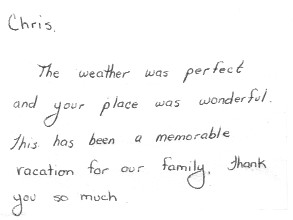 Chris,
The weather was perfect
and your place was wonderful.
This has been a memorable
vacation for our family. Thank
you so much